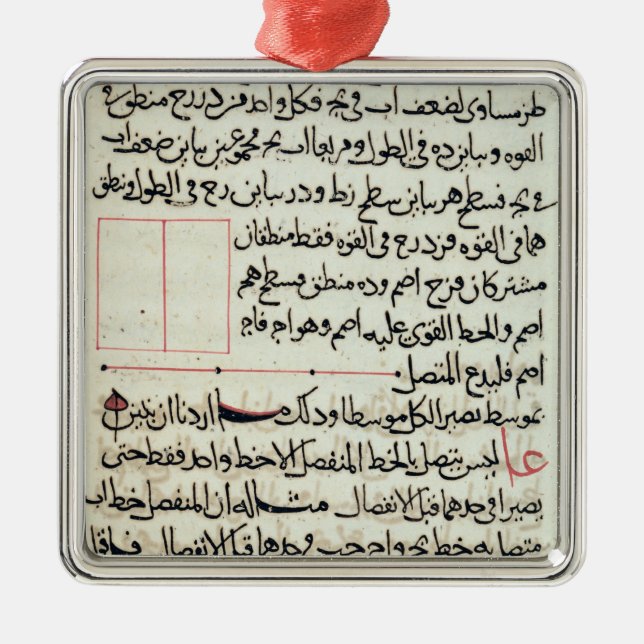 مساوى لضعف اب فى بج فكل واحد فر در رح منطق فى
القوه ومباينه ده فى الطول ومربعا اب بج مجموعين مباين ضعف اب
فى بج فسطح هر مباين سطح رط ودر مباين رح فى الطول ومنطق
هما فى القوه فر در رح فى القوه فقط منطقان
مشتركان فرح اصم وده منطق فسطح هم
اصم والخط القوى عليه اصم وهو اج فاج
اصم فليدع المتصل
بموسط يصير الكل موسطا وذلك ما اردنا ان نبين
عا ليس يتصل بالخط المنفصل الا خط واحد فقط حتى
يصيرا فى حدهما قبل الانفصال مثاله ان المنفصل خط اب
متصل به خط بج واج جب وحدهما قبل الانفصال فاقول